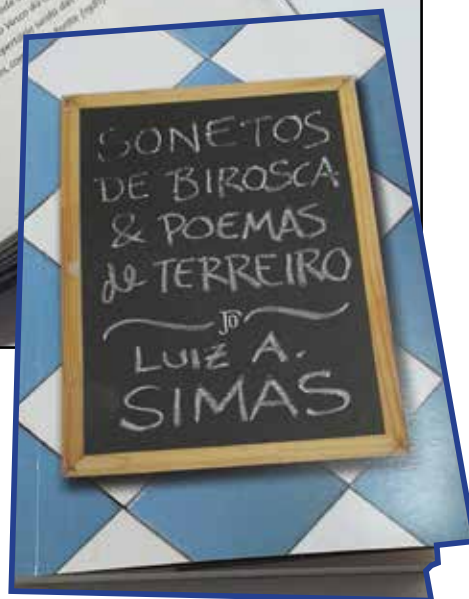 SONETOS
DE BIROSCA
& POEMAS
de TERREIRO
JO
LUIZ A.
SIMAS